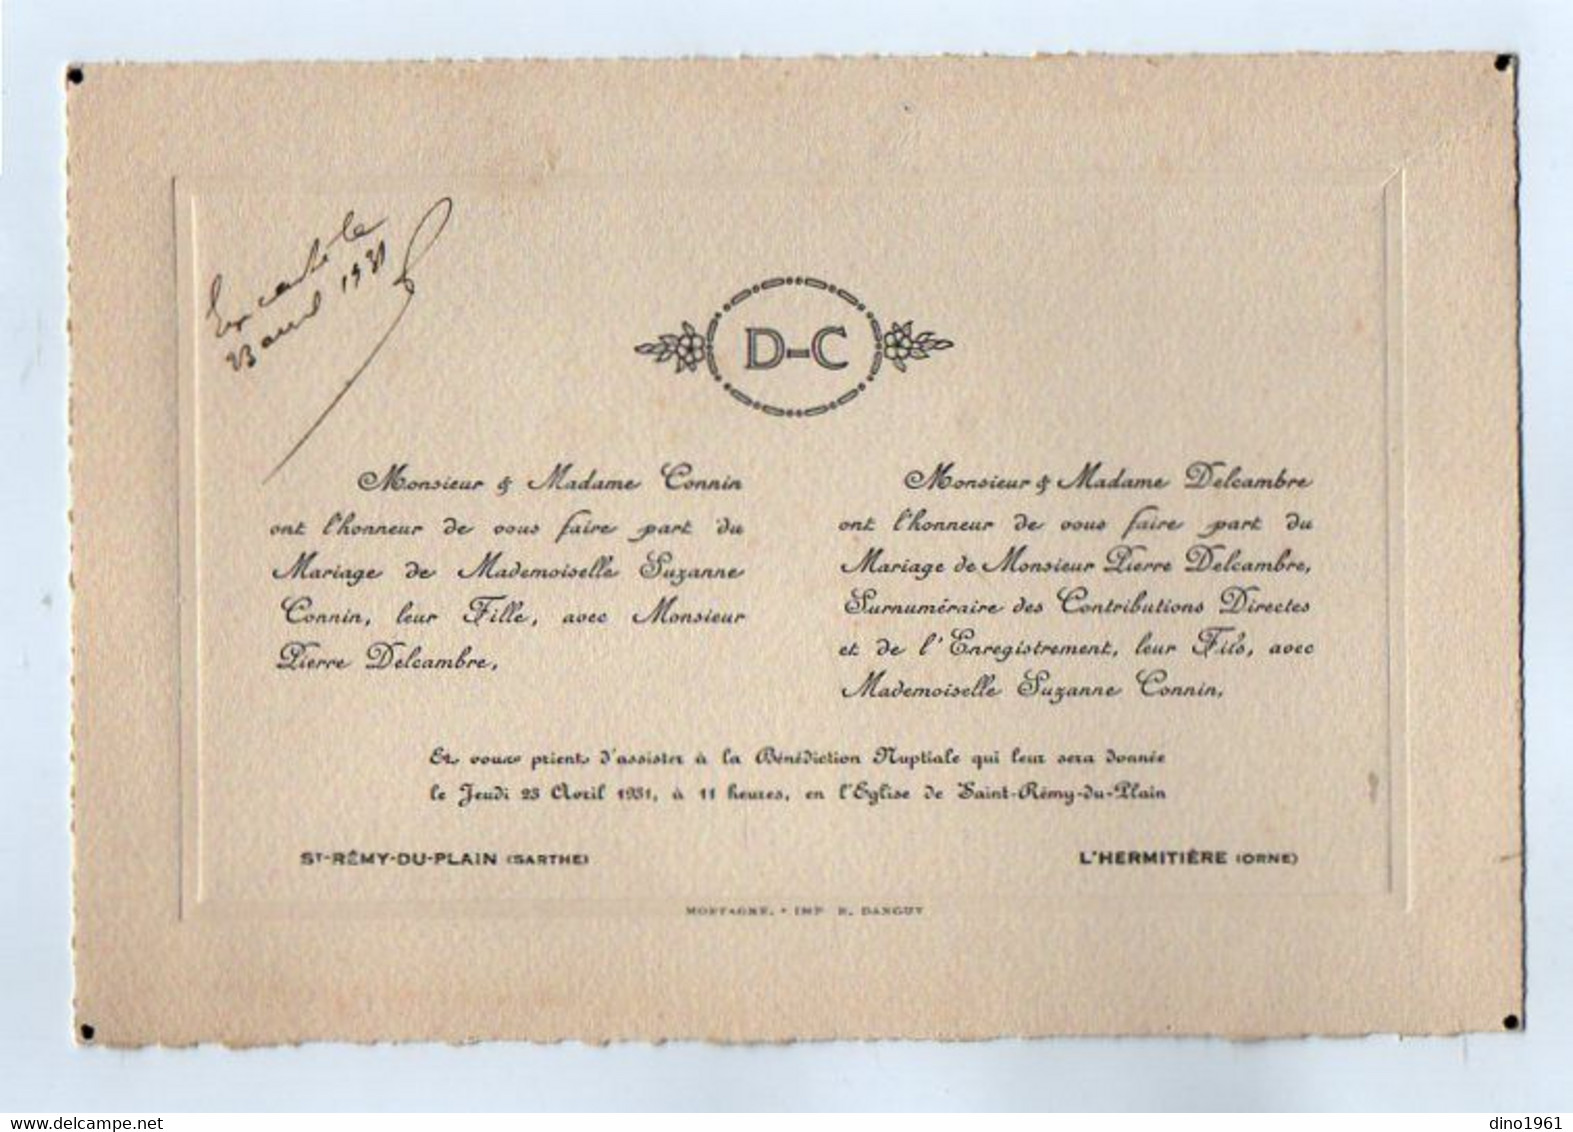 le
23 avril 1931
D-C
Monsieur & Madame Connin
ont l'honneur de vous faire part du
Mariage de Mademoiselle Suzanne
Connin, leur Fille, avec Monsieur
Pierre Delcambre,
Monsieur & Madame Delcambre
ont l'honneur de vous faire part du
Mariage de Monsieur Pierre Delcambre,
Surnuméraire des Contributions Directes
et de l'Enregistrement, leur Fils, avec
Mademoiselle Suzanne Connin,
Et vous prient d'assister à la Bénédiction Nuptiale qui leur sera donnée
le Jeudi 23 Avril 1931, à 11 heures, en l'Eglise de Saint-Rémy-du-Plain
ST-RÉMY-DU-PLAIN (SARTHE)
L'HERMITIÈRE (ORNE)
MORTAGNE. • IMP. R. DANGUY
delcampe.net
dino1961